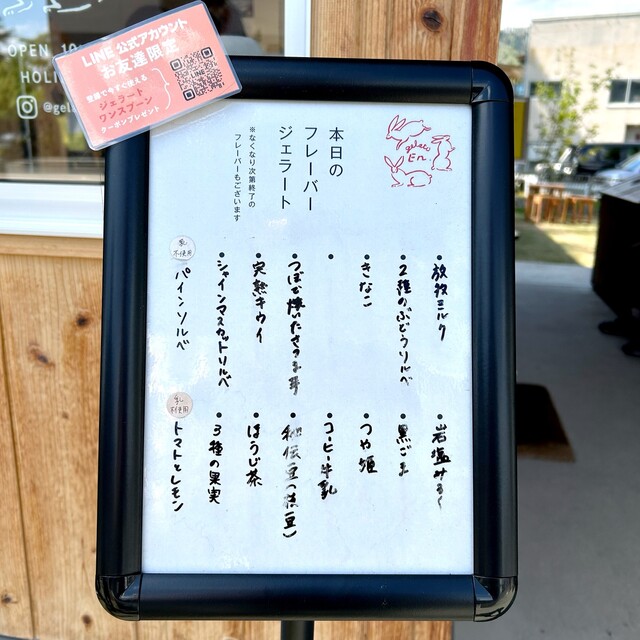 OPEN 10
HOLI
@gel
LINE 公式アカウント
お友達限定
登録で今すぐ使える
ジェラート
ワンスプーン
クーポンプレゼント
gelato
En.
本日の
フレーバー
ジェラート
※なくなり次第終了の
フレーバーもございます
・放牧ミルク
・2種のぶどうソルベ
・きなこ
・
・つぼ焼いたさつま芋
・完熟キウイ
・シャインマスカットソルベ
乳不使用
パインソルベ
・岩塩みるく
・黒ごま
・つや姫
・コーヒー牛乳
・秘伝豆(枝豆)
・ほうじ茶
・3種の果実
乳不使用
トマトとレモン